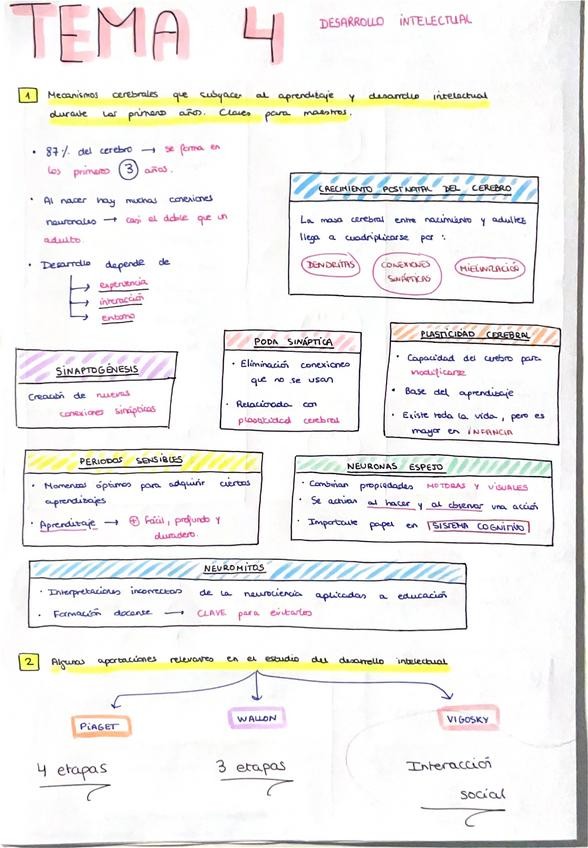 TEMA 4
DESARROLLO INTELECTUAL
1 Mecanismos cerebrales que subyacen al aprendizaje y desarrollo intelectual
durante los primeros años. Claves para maestros.
• 87% del cerebro → se forma en
los primeros 3 años.
• Al nacer hay muchas conexiones
neuronales → casi el doble que un
adulto
• Desarrollo depende de
→ experiencia
→ interacción
→ entorno
CRECIMIENTO POSTNATAL DEL CEREBRO
La masa cerebral entre nacimiento y adultez
llega a cuadriplicarse por :
DENDRITAS
CONEXIONES
SINÁPTICAS
MIELINIZACIÓN
SINAPTOGÉNESIS
Creación de nuevas
conexiones sinápticas
PODA SINÁPTICA
• Eliminación conexiones
que no se usan
• Relacionada con
plasticidad cerebral
PLASTICIDAD CEREBRAL
• Capacidad del cerebro para
modificarse
• Base del aprendizaje
• Existe toda la vida, pero es
mayor en INFANCIA
PERIODOS SENSIBLES
• Momentos óptimos para adquirir ciertos
aprendizajes
• Aprendizaje → + fácil, profundo y
duradero.
NEURONAS ESPEJO
• Combinan propiedades MOTORAS y VISUALES
• Se activan al hacer y al observar una acción
• Importante papel en SISTEMA COGNITIVO
NEUROMITOS
• Interpretaciones incorrectas de la neurociencia aplicadas a educación
• Formación docente → CLAVE para evitarlos
2 Algunas aportaciones relevantes en el estudio del desarrollo intelectual
PIAGET
WALLON
VIGOSKY
4 etapas
3 etapas
Interacción
social